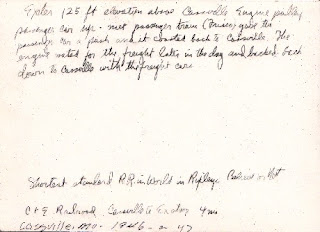 Exeter 125 ft elevation above Cassville Engine pulling
passenger car up - met passenger train (Frisco) gave the
passenger car a push and it coasted back to Cassville. The
engine waited for the freight later in the day and backed back
down to Cassville with the freight cars
Shortest standard R.R. in World in Ripleys Believe or Not
C & E Railroad, Cassville to Exeter 4 mi
Cassville, Mo - 1946 - or 47